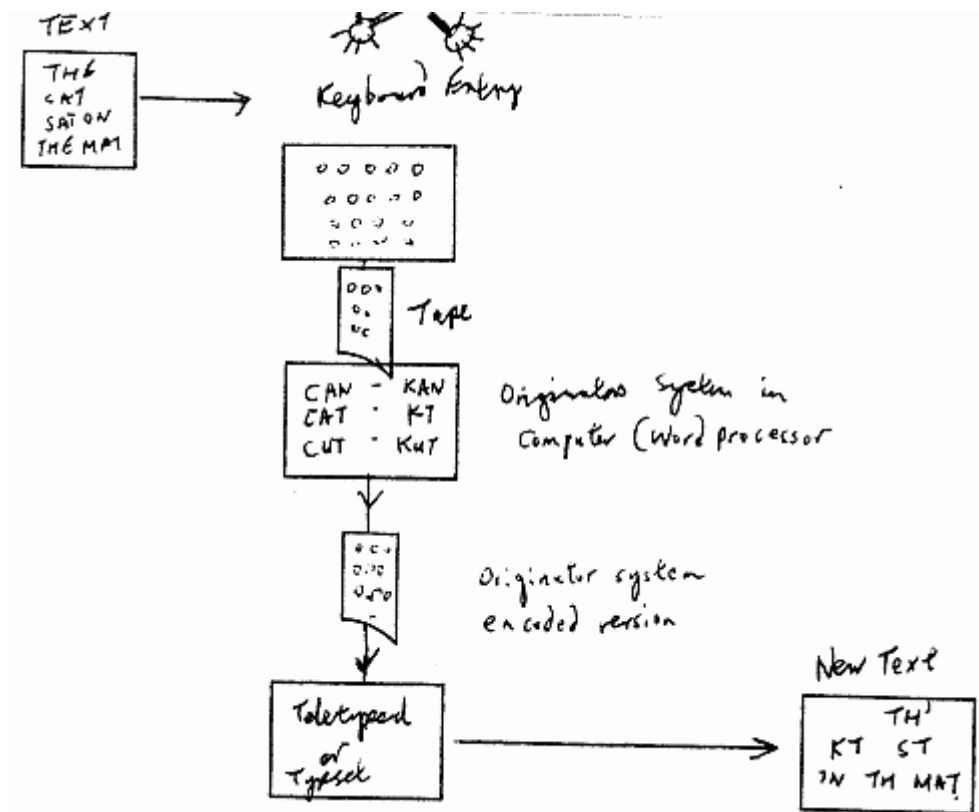 TEXT
THE
CAT
SAT ON
THE MAT
Keyboard Entry
Tape
CAN - KAN
CAT - KT
CUT - KUT
Originators System in
Computer (Word processor
Originator system
encoded version
Teletyped
or
Typeset
New Text
TH'
KT ST
ON TH MAT